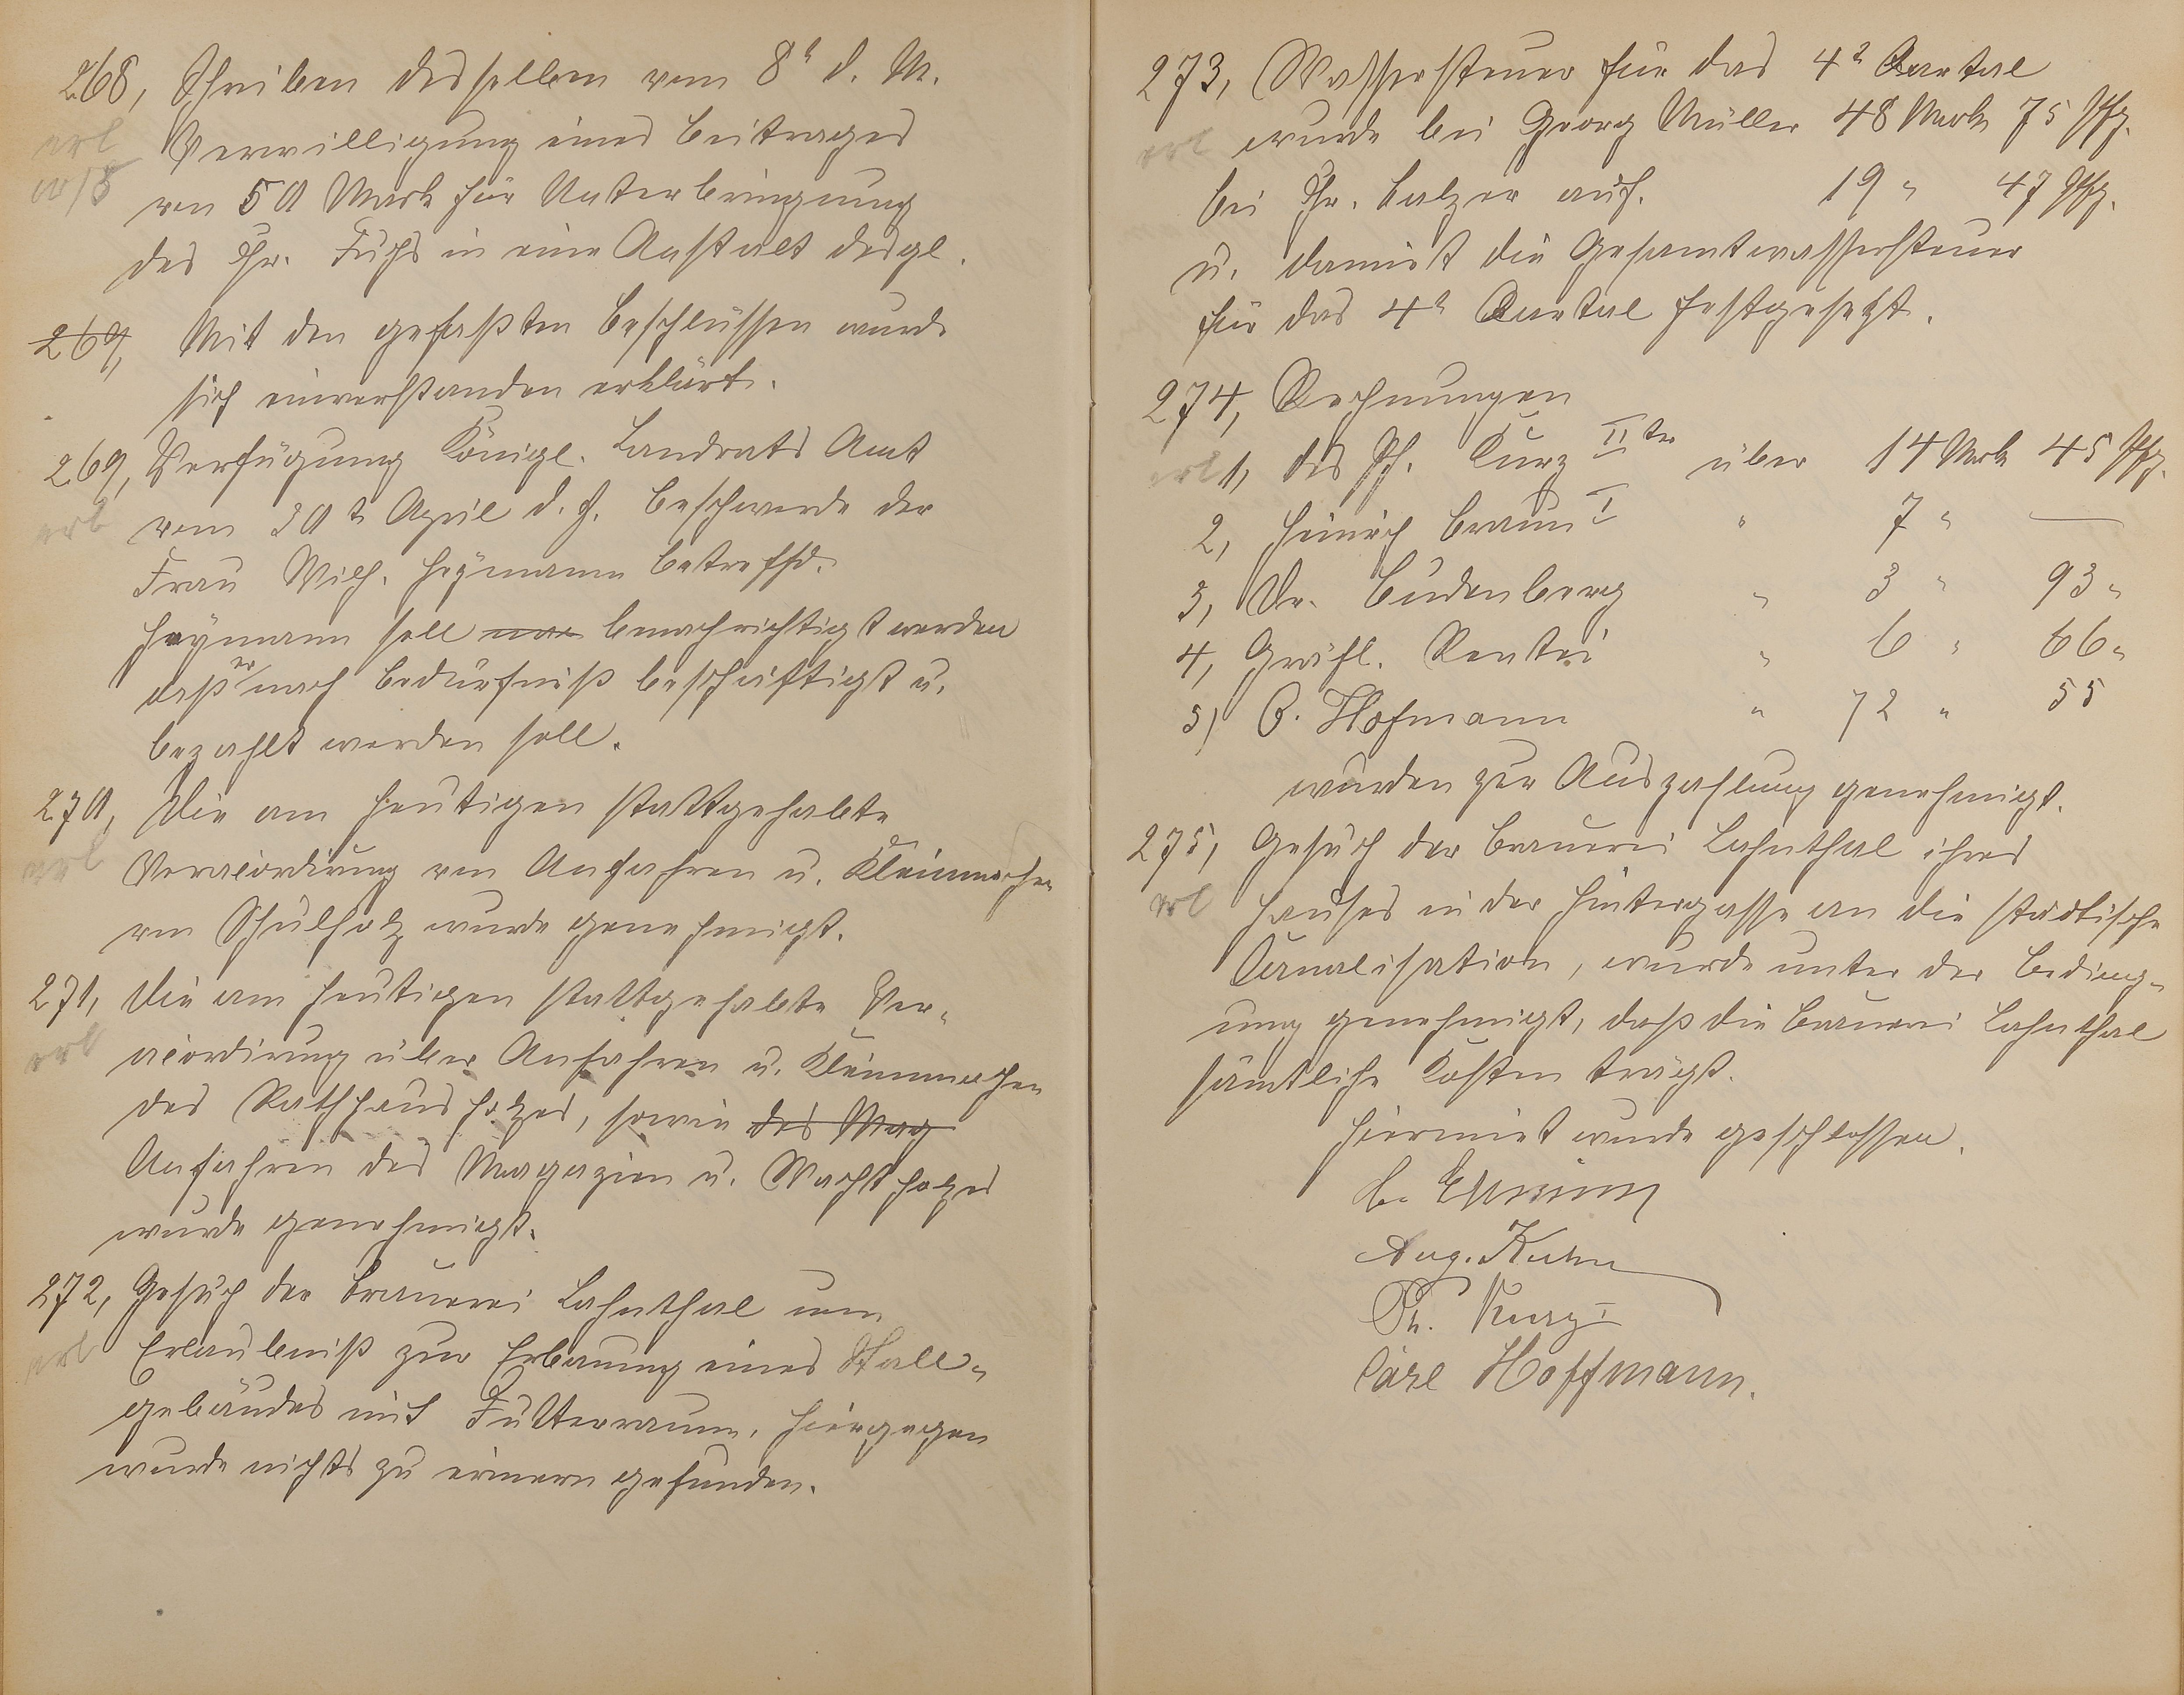 268, Schreiben desselben vom 8t d. M.
erl
Verwilligung eines Beitrages
von 50 Mark für Unterbringung
des Chr. Fuchs in eine Anstalt desgl.
269, Mit den gefaßten Beschlüssen wurde
sich einverstanden erklärt.
269, Verfügung Königl. Landrats Amt
erl
vom 30t April d. J. Beschwerde der
Frau Wilh. Heymann betreffd.
Heymann soll benachrichtigt werden
daß er nach Bedürfniß beschäftigt u.
bezahlt werden soll.
270, Die am heutigen stattgehabte
erl
Veraccordirung von Anfahren u. Kleinmachen
von Schulholz wurde genehmigt.
271, Die am heutigen stattgehabte Ver-
erl
accordirung über Anfahren u. Kleinmachen
des Rathhausholzes, sowie des Mag
Anfahren des Magazien u. Wachtholzes
wurde genehmigt.
272, Gesuch der Brauerei Lahnthal um
erl
Erlaubniß zur Erbauung eines Stall-
gebäudes mit Futterraum, hiergegen
wurde nichts zu erinnern gefunden.
273, Wassersteuer für das 4t Quartal
erl
wurde bei Georg Müller 48 Mark 75 Pfg.
bei Chr. Balzer auf. 19 " 47 Pfg.
u. damit die Gesamtwassersteuer
für das 4t Quartal festgesetzt.
274, Rechnungen
erl
1, des Ph. Kurz IIter über 14 Mark 45 Pfg.
2, Heinrich Braun I " 7 " —
3, Dr. Budenberg " 3 " 93 "
4, Gräfl. Rentei " 6 " 66 "
5, C. Hofmann " 72 " 55
wurden zur Auszahlung genehmigt.
275, Gesuch der Brauerei Lahnthal ihres
erl
Hauses in der Hintergasse an die städtische
Canalisation, wurde unter der Beding-
ung genehmigt, daß die Brauerei Lahnthal
sämtliche Kosten trägt.
Hiermit wurde geschlossen.
Aug. Kuhn
Ph. Kurz I
Carl Hoffmann.